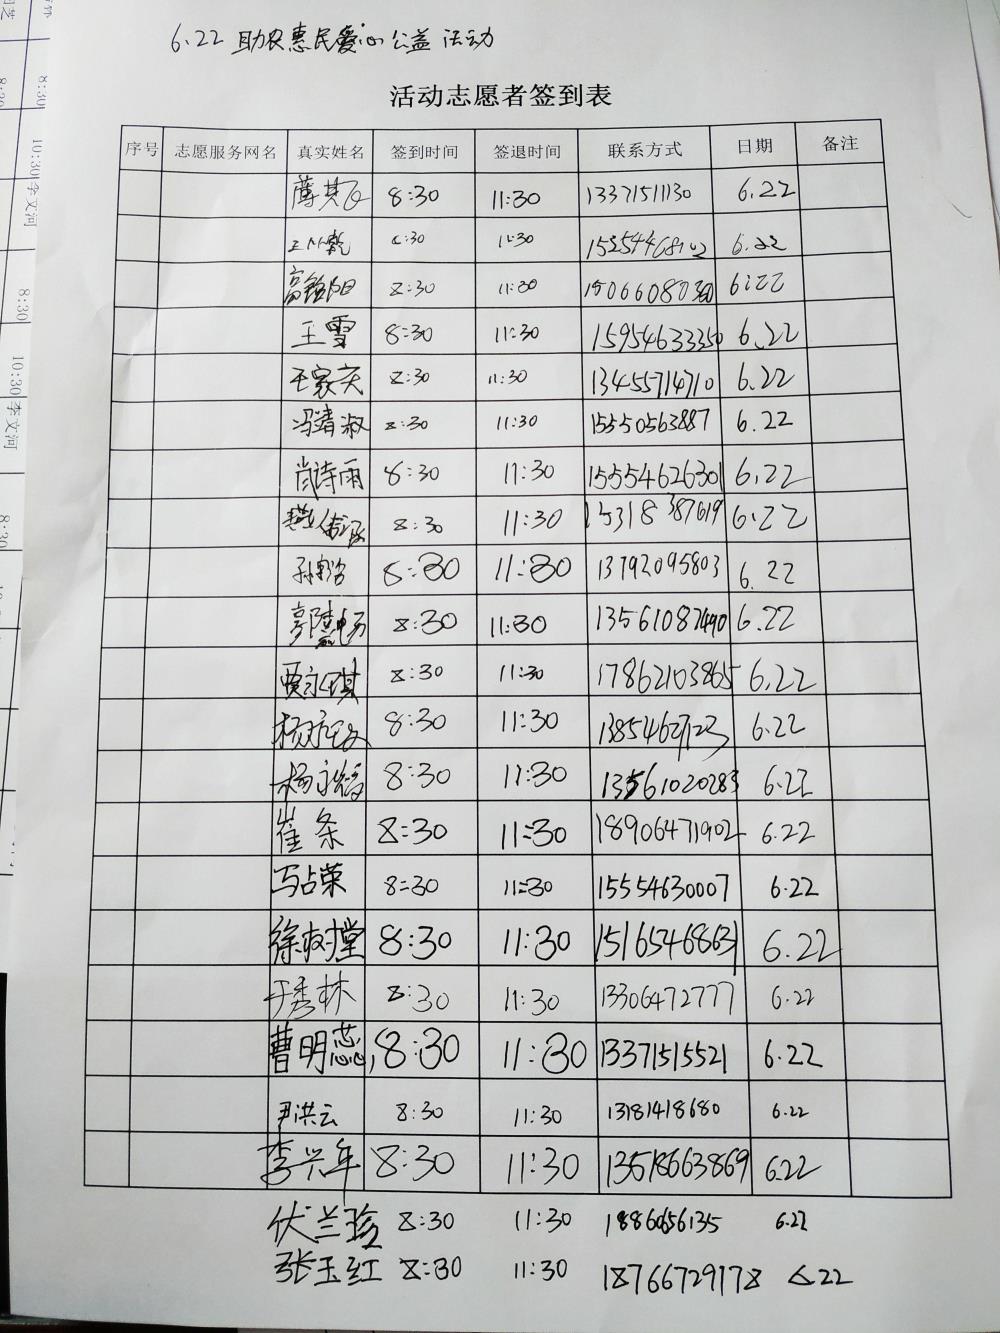 6.22 助农惠民爱心公益活动
活动志愿者签到表
序号 志愿服务网名 真实姓名 签到时间 签退时间 联系方式 日期 备注
薄其飞 8:30 11:30 13371511130 6.22
8:30 11:30 6.22
8:30 11:30 6.22
王雪 8:30 11:30 15954633350 6.22
王家庆 8:30 11:30 13455714710 6.22
冯靖淑 8:30 11:30 15550563887 6.22
肖诗雨 8:30 11:30 15554626301 6.22
8:30 11:30 15318387619 6.22
8:30 11:30 13792095803 6.22
8:30 11:30 6.22
贾永琪 8:30 11:30 17862103865 6.22
8:30 11:30 6.22
杨永 8:30 11:30 13561020283 6.22
崔条 8:30 11:30 18906471902 6.22
马占荣 8:30 11:30 15554630007 6.22
徐树堂 8:30 11:30 15165468631 6.22
于秀林 8:30 11:30 13306472777 6.22
曹明蕊 8:30 11:30 13371515521 6.22
尹洪云 8:30 11:30 13181418680 6.22
李兴年 8:30 11:30 13518663869 6.22
伏兰珍 8:30 11:30 6.22
张玉红 8:30 11:30 18766729178 6.22
8:30 10:30 李文河
8:30 10:30 李文河
8:30